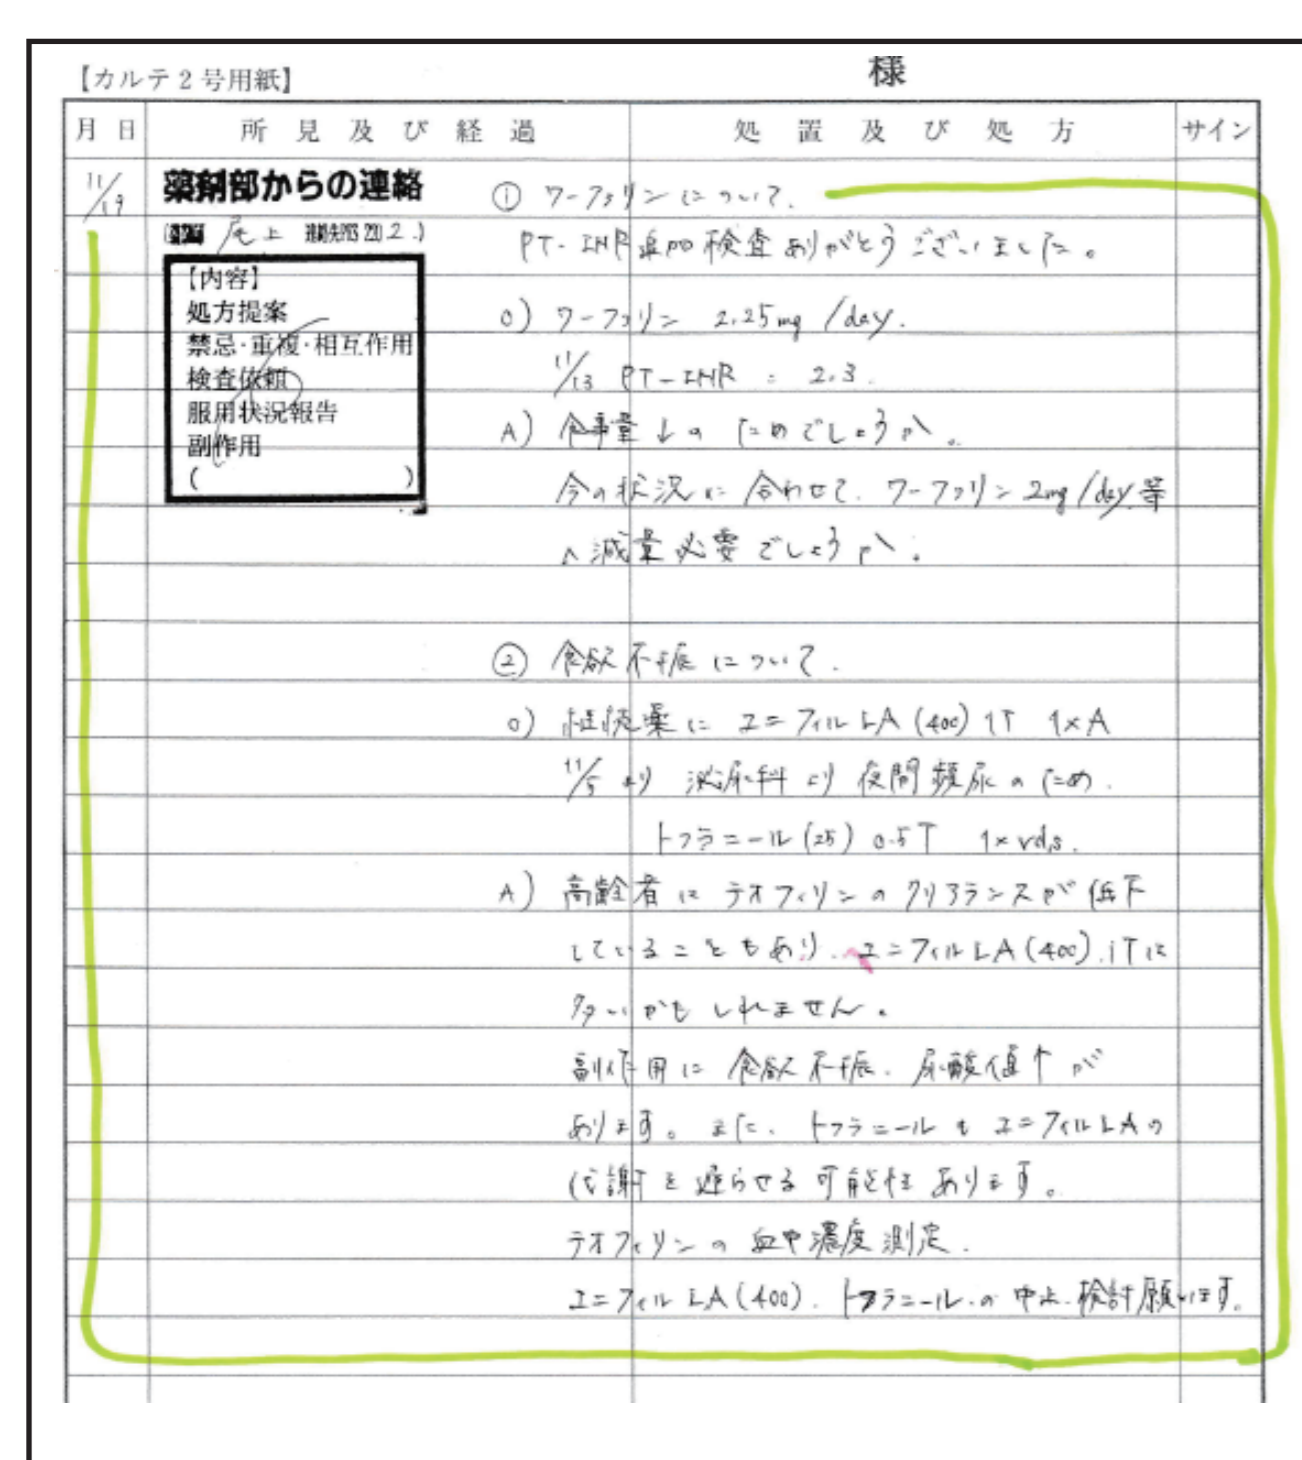 【カルテ2号用紙】
様
月 日 所 見 及 び 経 過 処 置 及 び 処 方 サイン
11/19
薬剤部からの連絡
尾上
【内容】
処方提案
禁忌・重複・相互作用
検査依頼
服用状況報告
副作用
( )
① ワーファリンについて.
PT-INR追加検査ありがとうございました。
O) ワーファリン 2.25mg /day.
11/13 PT-INR : 2.3.
A) 食事量↓のためでしょうか。
今の状況に合わせて、ワーファリン 2mg/day等
へ減量必要でしょうか.
② 食欲不振について.
O) ユニフィルLA(400) 1T 1×A
11/5より 泌尿科より夜間頻尿のため.
トフラニール(25) 0.5T 1×vds.
A) 高齢者はテオフィリンのクリアランスが低下
していることもあり、ユニフィルLA(400).1Tは
多いかもしれません。
副作用に食欲不振、尿酸値↑が
あります。また、トフラニールもユニフィルLAの
代謝を遅らせる可能性あります。
テオフィリンの血中濃度測定.
ユニフィルLA(400). トフラニール.の中止.検討願います。